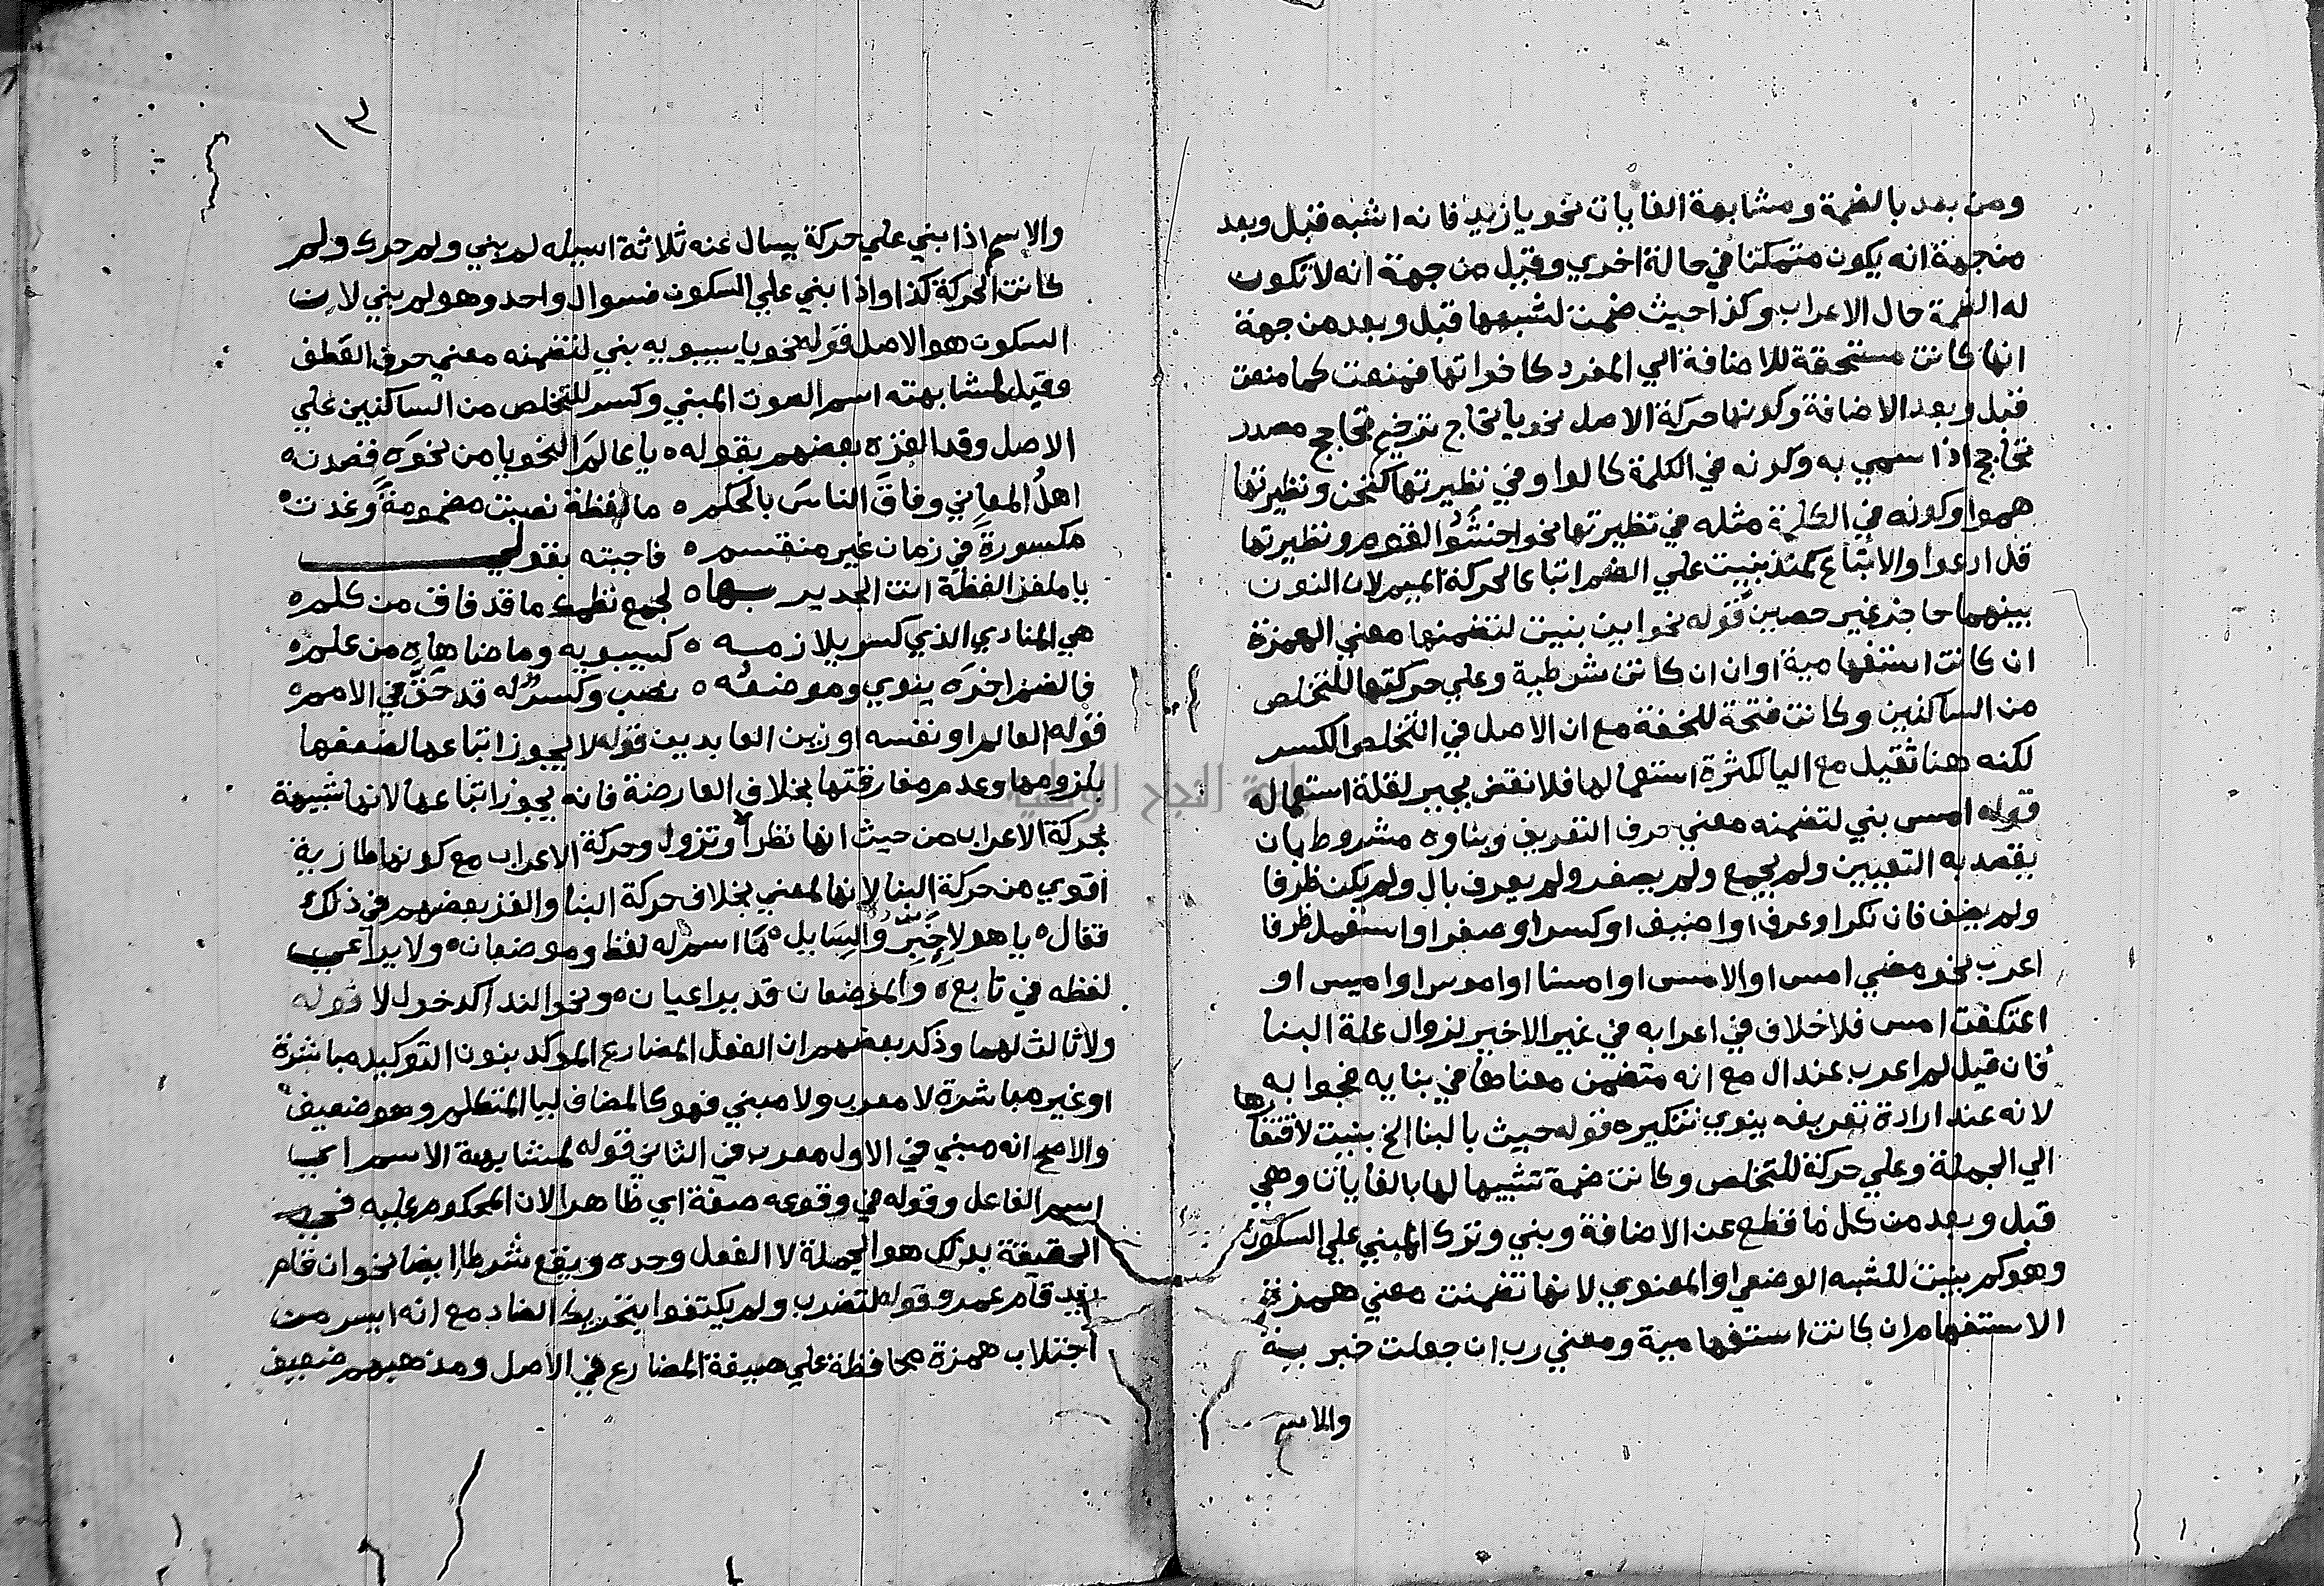 ومن بعد بالضمة ومشابهة الغايات نحو يا زيد فانه اشبه قبل وبعد
من جهة انه يكون متمكنا في حالة اخري وقيل من جهة انه لا تكون
له الضمة حال الاعراب وكذا حيث ضمت لشبهها قبل وبعد من جهة
انها كانت مستحقة للاضافة الي المفرد كاخواتها فمنعت كما منعت
قبل وبعد الاضافة وكونها حركة الاصل نحو يا تحاج ترخيم تحاجج مصدر
تحاجج اذا سمي به وكونه في الكلمة كالواو في نظيرتها كنحن ونظيرتها
هموا وكونه في الكلمة مثله في نظيرتها نحو اخشوا القوم ونظيرتها
قل ادعوا والاتباع كمنذ بنيت علي الضم اتباعا لحركة الميم لان النون
بينهما حاجز غير حصين قوله نحو اين بنيت لتضمنها معني الهمزة
ان كانت استفهامية او ان ان كانت شرطية وعلي حركتها للتخلص
من الساكنين وكانت فتحة للخفة مع ان الاصل في التخلص الكسر
لكنه هنا ثقيل مع اليا لكثرة استعمالها فلا نقض بجير لقلة استعماله
قوله امس بني لتضمنه معني حرف التعريف وبناوه مشروط بان
يقصد به التعيين ولم يجمع ولم يصغر ولم يعرف بال ولم يكن ظرفا
ولم يضف فان نكر او عرف او اضيف او كسر او صغر او استعمل ظرفا
اعرب نحو مضي امس او الامس او امسنا او اموس او اميس او
اعتكفت امس فلا خلاف في اعرابه في غير الاخير لزوال علة البنا
فان قيل لم اعرب عند ال مع انه متضمن معناها في بنايه فجوابه
لانه عند ارادة تعريفه ينوي تنكيره قوله حيث بالبنا الخ بنيت لافتقارها
الي الجملة وعلي حركة للتخلص وكانت ضمة تشبيها لها بالغايات وهي
قبل وبعد من كل ما قطع عن الاضافة وبني وترك المبني علي السكون
وهو كم بنيت للشبه الوضعي او المعنوي لانها تضمنت معني همزة
الاستفهام ان كانت استفهامية ومعني رب ان جعلت خبرية
والاسم
١٣
والاسم اذا بني علي حركة يسال عنه ثلاثة اسيله لم بني ولم حرك ولم
كانت الحركة كذا واذا بني علي السكون فسوال واحد وهو لم بني لان
السكون هو الاصل قوله نحو يا سيبويه بني لتضمنه معني حرف العطف
وقيل لمشابهته اسم الصوت المبني وكسر للتخلص من الساكنين علي
الاصل وقد الغزه بعضهم بقوله ه يا عالم النحو يا من نحوه قصدت ه
اهل المعاني وفاق الناس بالحكم ه ما لفظة نصبت مضمومة وغدت ه
مكسورة في زمان غير منقسم ه فاجبته بقولي
يا ملغز اللفظة انت الجدير بها ه لجمع نظمك ما قد فاق من كلم ه
هي المنادي الذي كسر يلازمه ه كسيبويه وما ضاهاه من علم ه
فالضم اخره ينوي وموضعه ه نصب وكسر له قد حق في الامم ه
قوله العالم او نفسه او زين العابدين قوله لا يجوز اتباعها لضعفها
بلزومها وعدم مفارقتها بخلاف العارضة فانه يجوز اتباعها لانها شبيهة
بحركة الاعراب من حيث انها تطرا وتزول وحركة الاعراب مع كونها طارية
اقوي من حركة البنا لانها لمعني بخلاف حركة البنا والغز بعضهم في ذلك
فقال ه يا هولا خبروا السايل ه ما اسم له لفظ وموضعان ه ولا يراعي
لفظه في تابع ه والموضعان قد يراعيان ه ونحو الندا كدخول لا قوله
ولا ثالث لهما وذكر بعضهم ان الفعل المضارع الموكد بنون التوكيد مباشرة
او غير مباشرة لا معرب ولا مبني فهو كالمضاف ليا المتكلم وهو ضعيف
والاصح انه مبني في الاول معرب في الثاني قوله لمشابهة الاسم اي
اسم الفاعل وقوله في وقوعه صفة اي ظاهرا لان المحكوم عليه في
الحقيقة بذلك هو الجملة لا الفعل وحده ويقع شرطا ايضا نحو ان قام
زيد قام عمرو قوله لتضرب ولم يكتفوا بتحريك الضاد مع انه ايسر من
اجتلاب همزة محافظة علي صيغة المضارع في الاصل ومذهبهم ضعيف
جامعة النجاح الوطنية